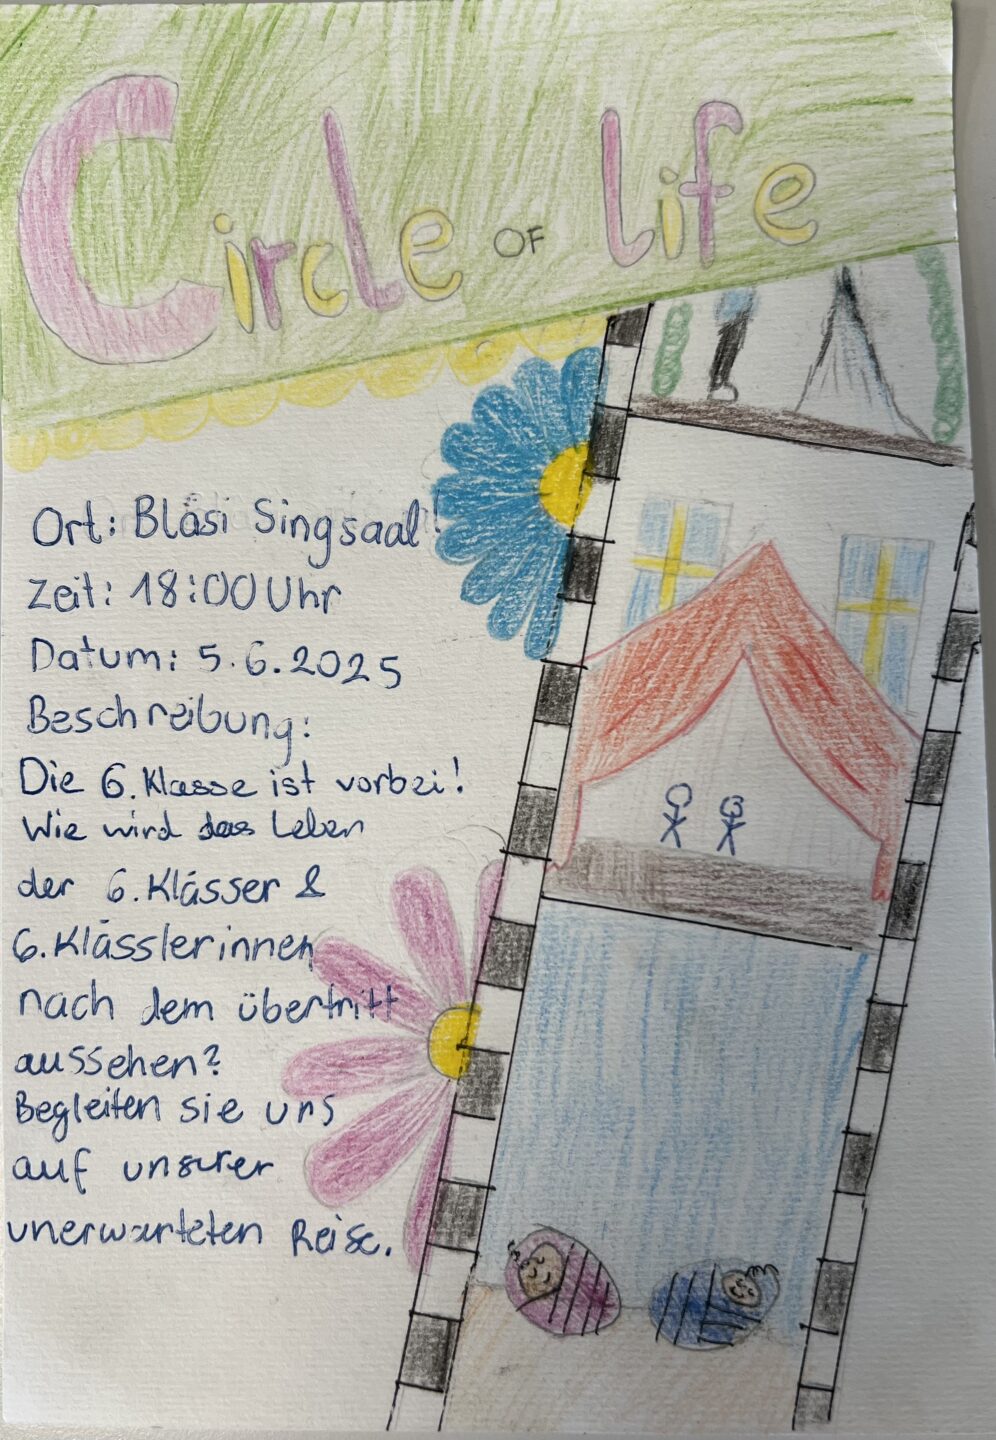 Circle OF life
Ort: Bläsi Singsaal!
Zeit: 18:00 Uhr
Datum: 5.6.2025
Beschreibung:
Die 6. Klasse ist vorbei!
Wie wird das Leben
der 6. Klässer &
6. Klässlerinnen
nach dem übertritt
aussehen?
Begleiten sie uns
auf unserer
unerwarteten Reise.